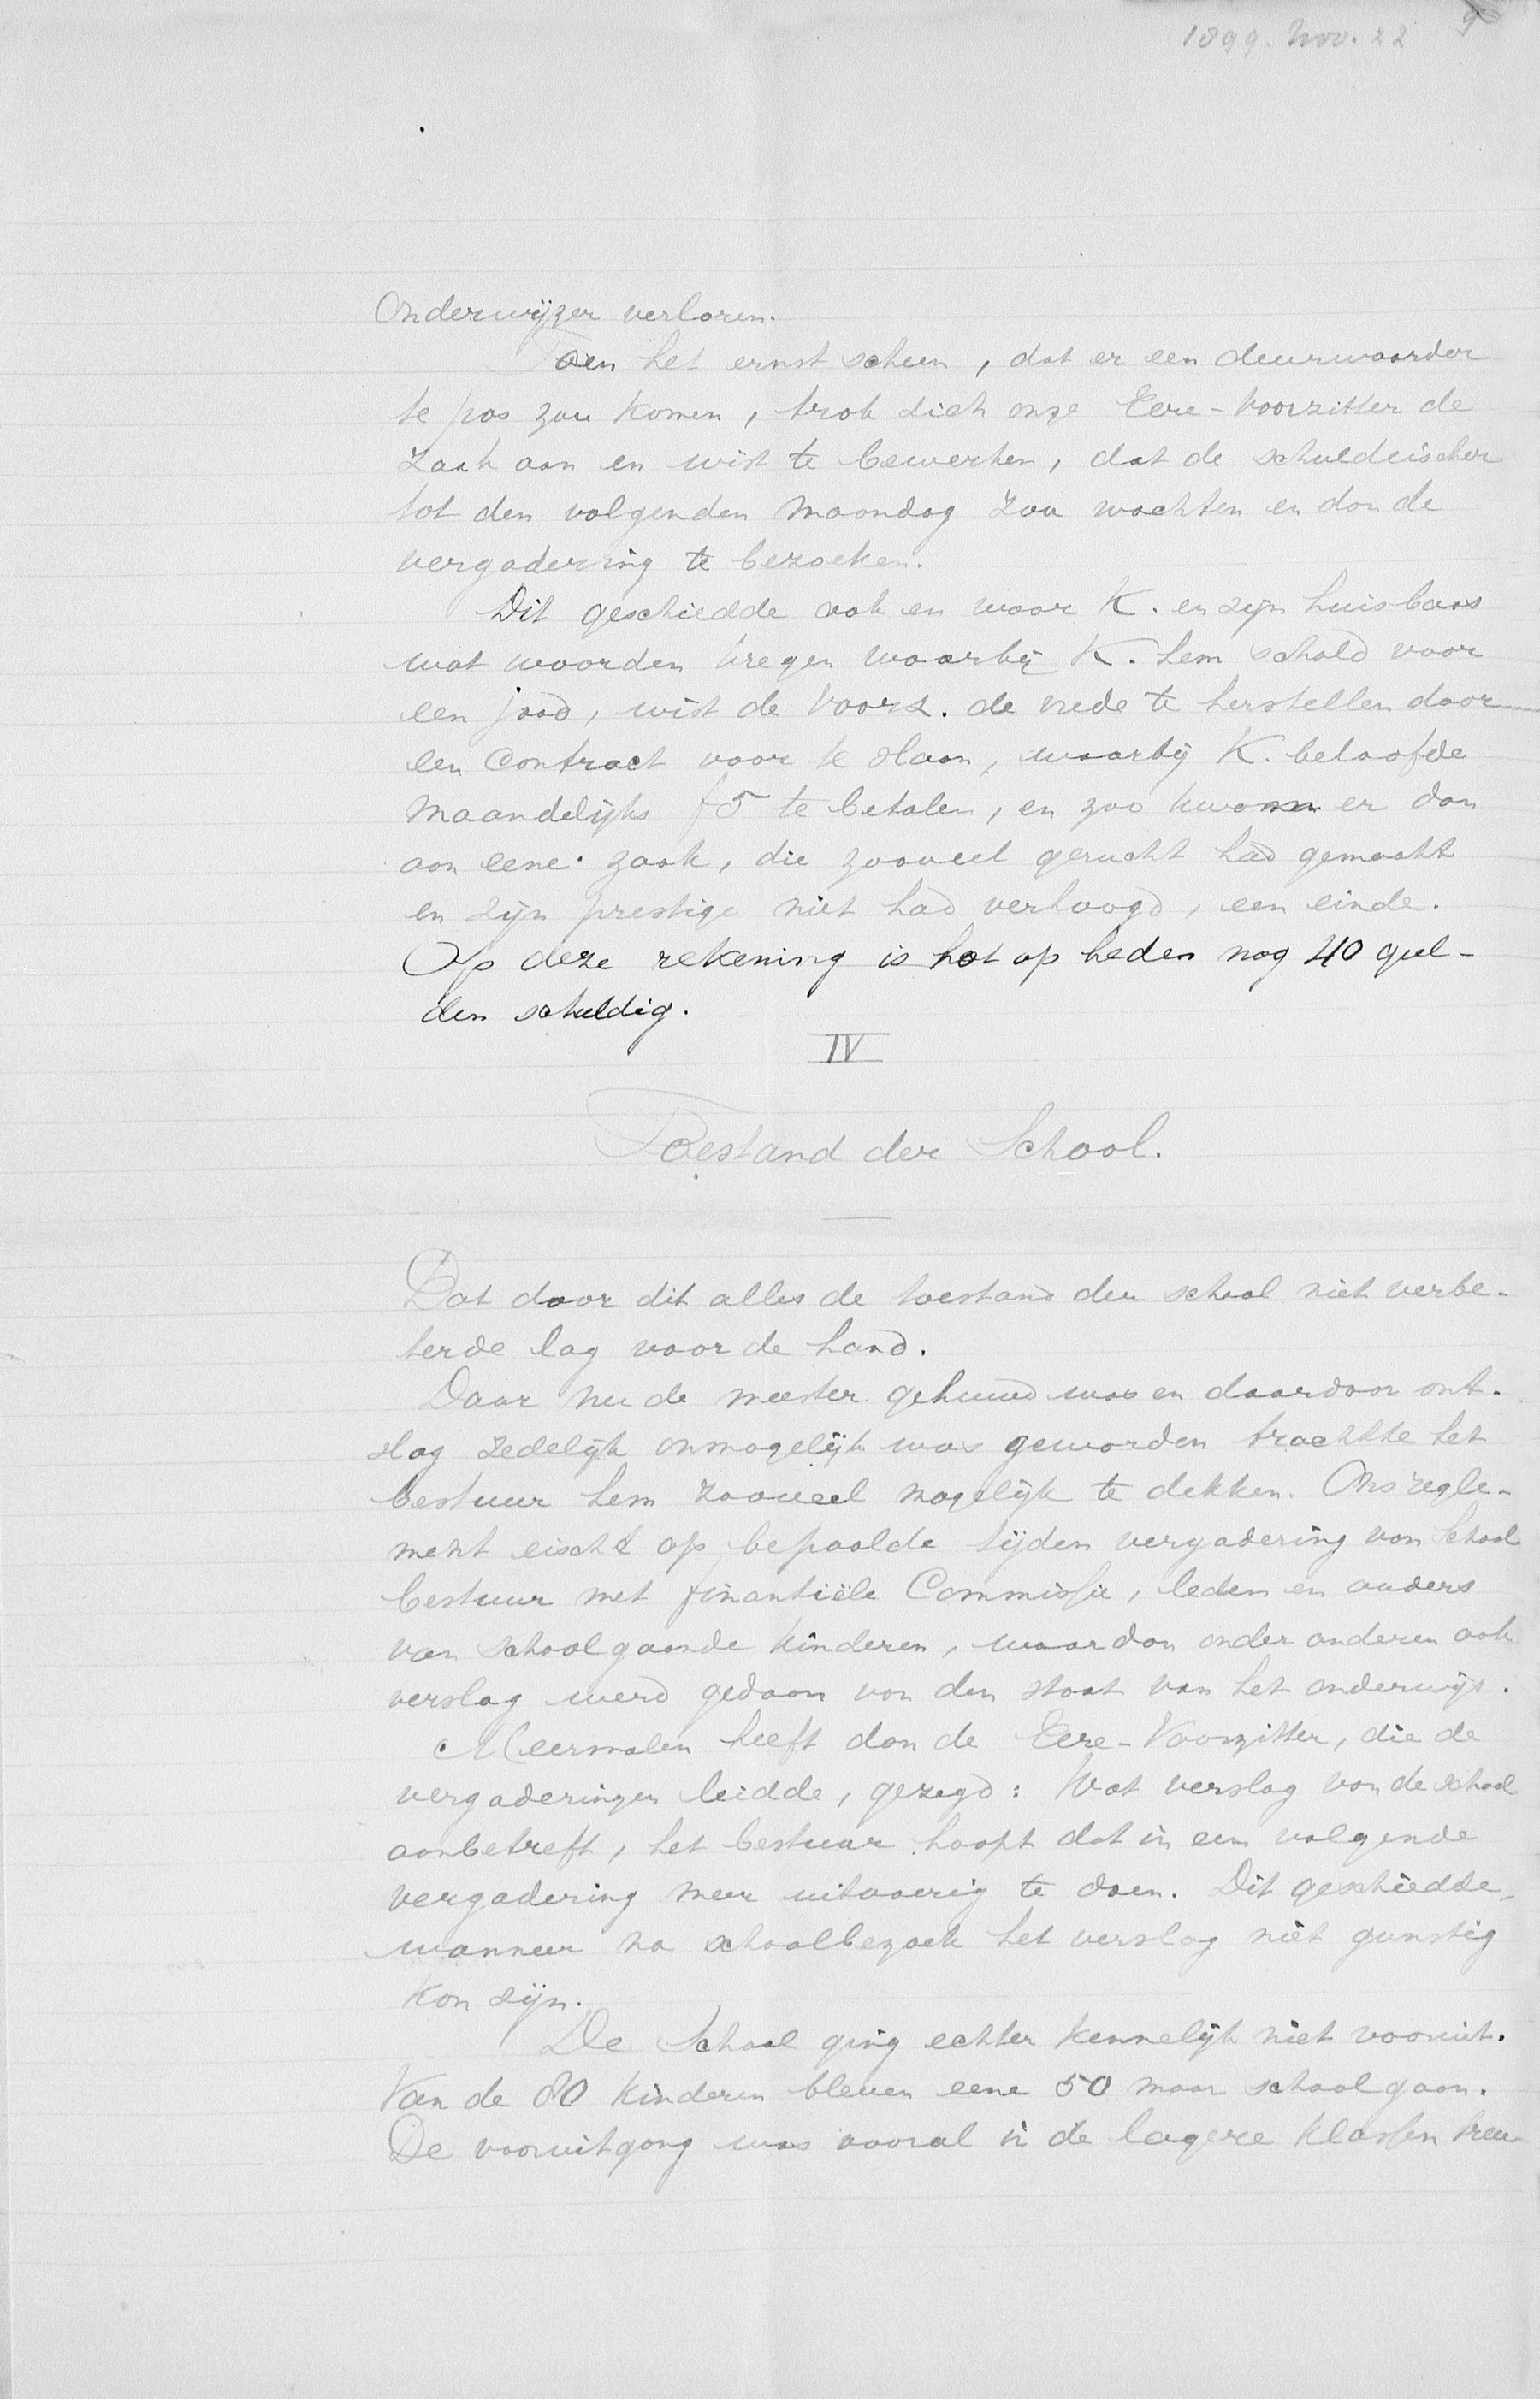 1899. Nov. 22
Onderwijzer verloren.
Toen het ernst scheen, dat er een deurwaarder
te pas zou komen, trok zich onze Eere-Voorzitter de
zaak aan en wist te bewerken, dat de schuldeischer
tot den volgenden Maandag zou wachten en dan de
vergadering te bezoeken.
Dit geschiedde ook en waar K. en zijn huisbaas
wat woorden kregen waarbij K. hem schold voor
een jood, wist de Voorz. de vrede te herstellen door
een contract voor te slaan, waarbij K. beloofde
Maandelijks f5 te betalen, en zoo kwam er dan
aan eene zaak, die zooveel gerucht had gemaakt
en zijn prestige niet had verhoogd, een einde.
Op deze rekening is hot op heden nog 40 gul-
den schuldig.
IV
Toestand der School.
Dat door dit alles de toestand der school niet verbe-
terde lag voor de hand.
Daar nu de meester gehuwd was en daardoor ont-
slag zedelijk onmogelijk was geworden trachtte het
bestuur hem zooveel mogelijk te dekken. Ons regle-
ment eischt op bepaalde tijden vergadering van School
bestuur met finantiële Commissie, leden en ouders
van schoolgaande kinderen, waar dan onder anderen ook
verslag werd gedaan van den staat van het onderwijs.
Meermalen heeft dan de Eere-Voorzitter, die de
vergaderingen leidde, gezegd: Wat verslag van de school
aanbetreft, het bestuur hoopt dat in een volgende
vergadering meer uitvoerig te doen. Dit geschiedde,
wanneer na schoolbezoek het verslag niet gunstig
kon zijn.
De School ging echter kennelijk niet vooruit.
Van de 80 kinderen bleven eene 50 maar schoolgaan.
De vooruitgang was vooral in de lagere klassen treu-